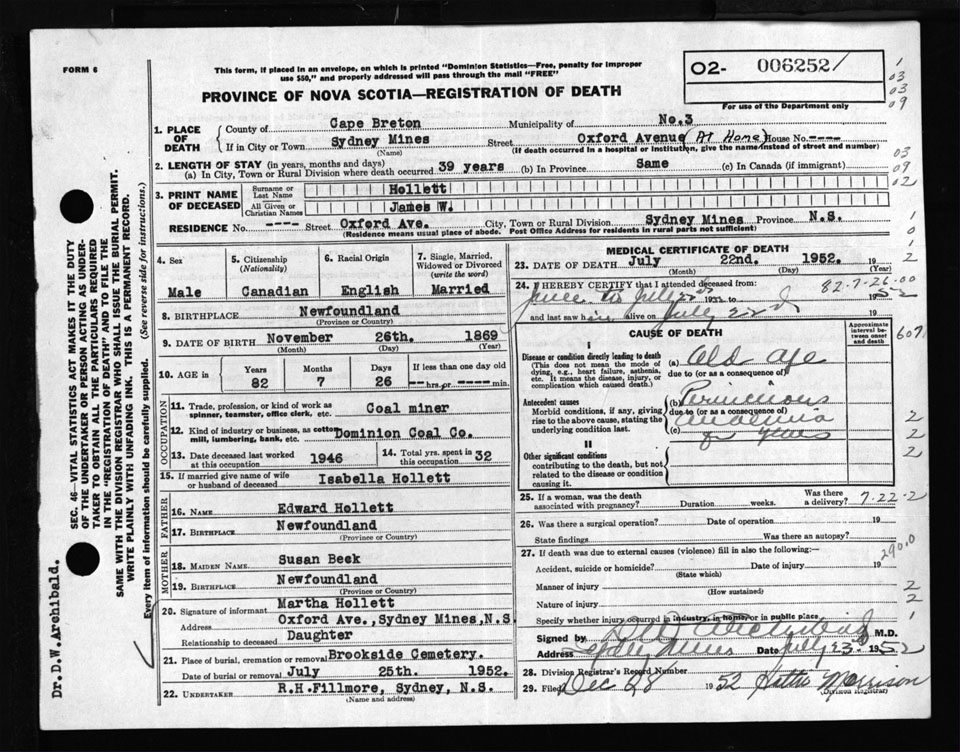 FORM 6
This form, if placed in an envelope, on which is printed "Dominion Statistics—Free, penalty for improper
use $50," and properly addressed will pass through the mail "FREE"
PROVINCE OF NOVA SCOTIA—REGISTRATION OF DEATH
O2- 006252/
For use of the Department only
1. PLACE OF DEATH
County of Cape Breton Municipality of No.3
If in City or Town Sydney Mines Street Oxford Avenue (At Home) House No. ----
(Name) (If death occurred in a hospital or institution, give the name instead of street and number)
2. LENGTH OF STAY (in years, months and days)
(a) In City, Town or Rural Division where death occurred 39 years (b) In Province Same (c) In Canada (if immigrant)
3. PRINT NAME OF DECEASED
Surname or Last Name Hollett
All Given or Christian Names James W.
RESIDENCE No. ---- Street Oxford Ave. City, Town or Rural Division Sydney Mines Province N.S.
(Residence means usual place of abode. Post Office Address for residents in rural parts not sufficient)
4. Sex 5. Citizenship (Nationality) 6. Racial Origin 7. Single, Married, Widowed or Divorced (write the word)
Male Canadian English Married
8. BIRTHPLACE Newfoundland
(Province or Country)
9. DATE OF BIRTH November 26th. 1869
(Month) (Day) (Year)
10. AGE in Years Months Days If less than one day old
82 7 26 ---hrs. or ----min.
OCCUPATION
11. Trade, profession, or kind of work as spinner, teamster, office clerk, etc. Coal miner
12. Kind of industry or business, as cotton mill, lumbering, bank, etc. Dominion Coal Co.
13. Date deceased last worked at this occupation 1946 14. Total yrs. spent in this occupation 32
15. If married give name of wife or husband of deceased Isabella Hollett
FATHER
16. NAME Edward Hollett
17. BIRTHPLACE Newfoundland
(Province or Country)
MOTHER
18. MAIDEN NAME Susan Beck
19. BIRTHPLACE Newfoundland
(Province or Country)
20. Signature of informant Martha Hollett
Address Oxford Ave., Sydney Mines, N.S.
Relationship to deceased Daughter
21. Place of burial, cremation or removal Brookside Cemetery.
Date of burial or removal July 25th. 1952.
22. UNDERTAKER R.H.Fillmore, Sydney, N.S.
(Name and address)
MEDICAL CERTIFICATE OF DEATH
23. DATE OF DEATH July 22nd. 1952.
(Month) (Day) (Year)
24. I HEREBY CERTIFY that I attended deceased from:
82-7-26-00
and last saw h alive on July 22 19
CAUSE OF DEATH
Approximate interval between onset and death
I
Disease or condition directly leading to death
(This does not mean the mode of dying, e.g., heart failure, asthenia, etc. It means the disease, injury, or complication which caused death.)
(a) Old age
due to (or as a consequence of)
Antecedent causes
Morbid conditions, if any, giving rise to the above cause, stating the underlying condition last.
(b) Pernicious
due to (or as a consequence of)
anaemia
(c) years
II
Other significant conditions
contributing to the death, but not related to the disease or condition causing it.
25. If a woman, was the death associated with pregnancy? Duration weeks. Was there a delivery? 7-22-2
26. Was there a surgical operation? Date of operation 19
State findings Was there an autopsy?
27. If death was due to external causes (violence) fill in also the following: 290.0
Accident, suicide or homicide? Date of injury 19
(State which)
Manner of injury
(How sustained)
Nature of injury
Specify whether injury occurred in industry, in home, or in public place
Signed by M.D.
Address Sydney Mines Date July 23 1952
28. Division Registrar's Record Number
29. Filed Dec 28 1952 Morrison
(Division Registrar)
SEC. 46—VITAL STATISTICS ACT MAKES IT THE DUTY
OF THE UNDERTAKER OR PERSON ACTING AS UNDER-
TAKER TO OBTAIN ALL THE PARTICULARS REQUIRED
IN THE "REGISTRATION OF DEATH" AND TO FILE THE
SAME WITH THE DIVISION REGISTRAR WHO SHALL ISSUE THE BURIAL PERMIT.
WRITE PLAINLY WITH UNFADING INK. THIS IS A PERMANENT RECORD.
Every item of information should be carefully supplied. (See reverse side for instructions.)
Dr.D.W.Archibald.
1
03
03
09
03
09
02
1
0
1
2
607
2
2
2
2
1